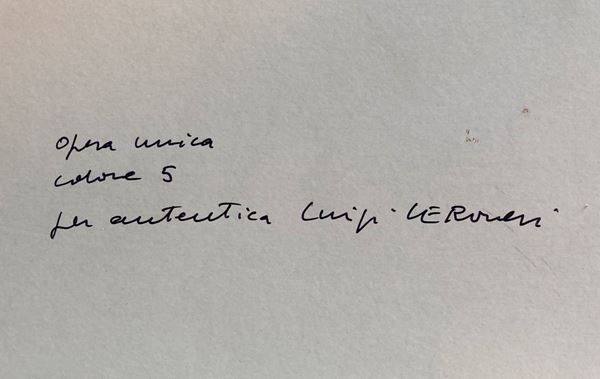 opera unica
colore 5
per autentica Luigi VERonesi